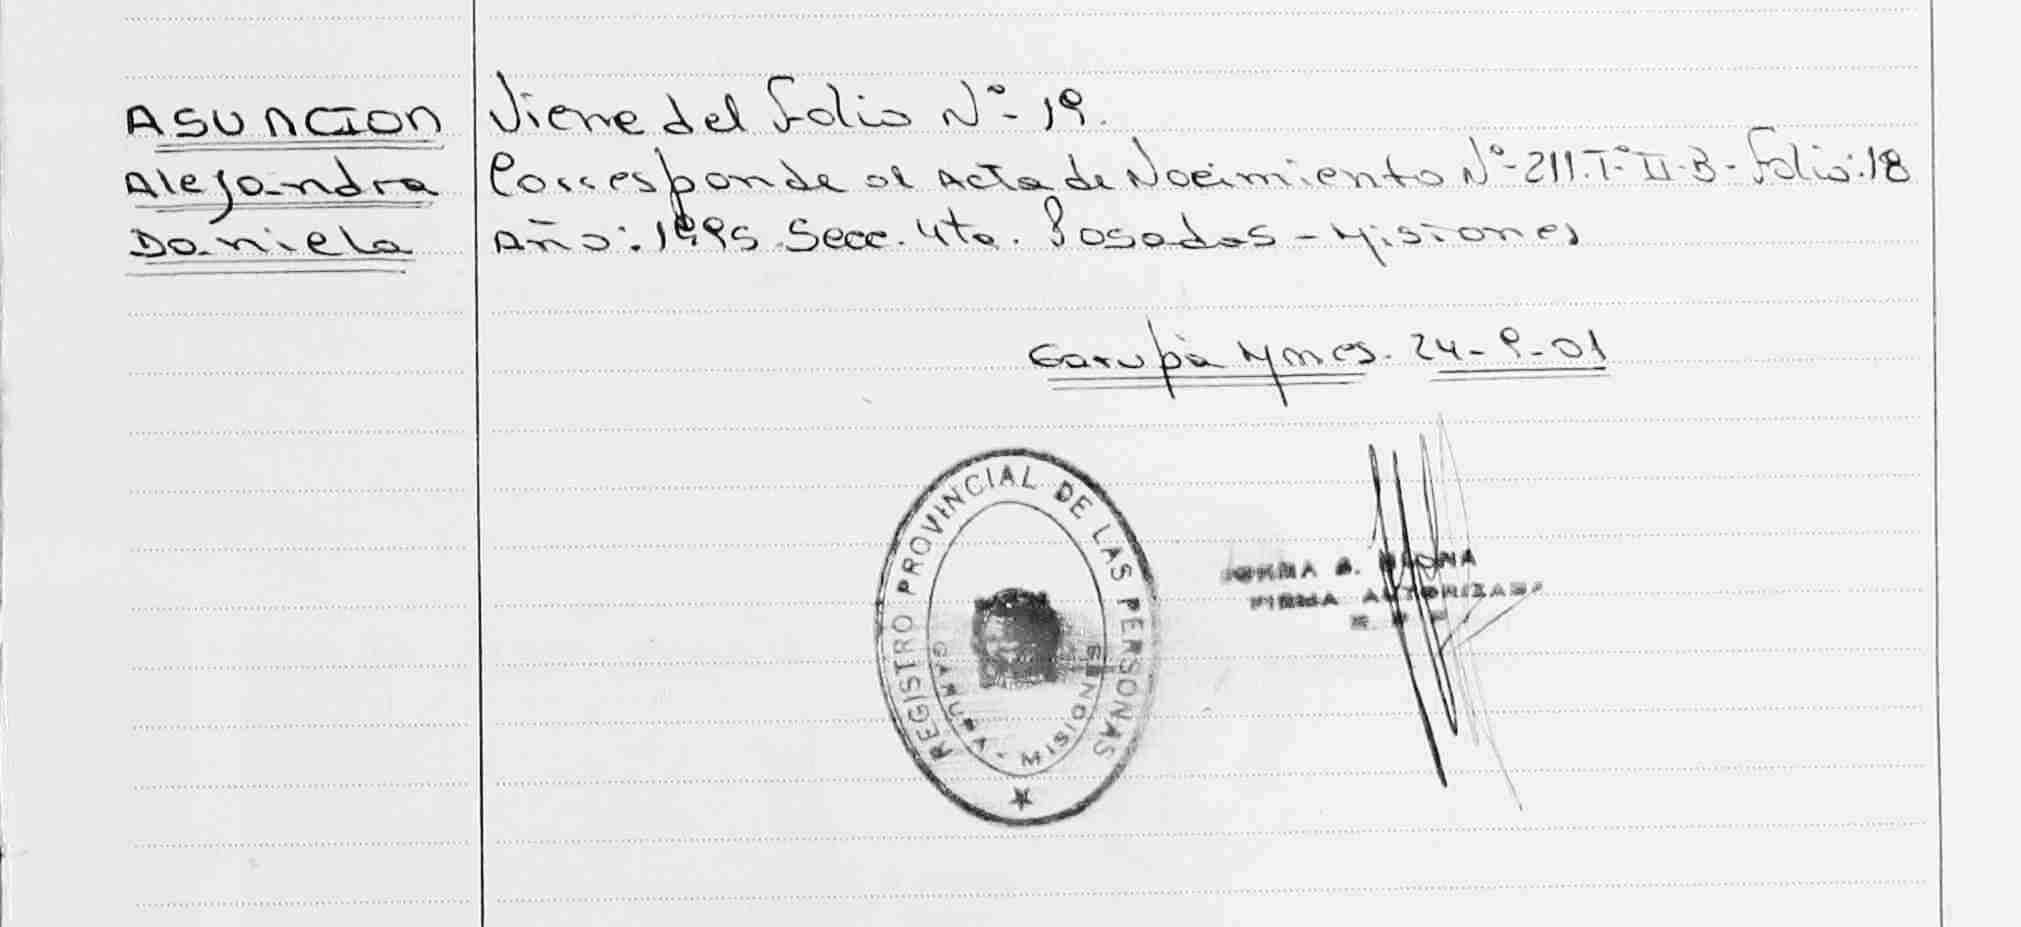 ASUNCION
Alejandra
Daniela
Viene del Folio Nº- 19.
Corresponde al Acta de Nacimiento Nº-211.Tº II-B-Folio:18
Año:1995 Secc. 4ta. Posadas-Misiones
Garupá Mnes. 24-9-01
REGISTRO PROVINCIAL DE LAS PERSONAS
GARUPA - MISIONES
FIRMA AUTORIZADA